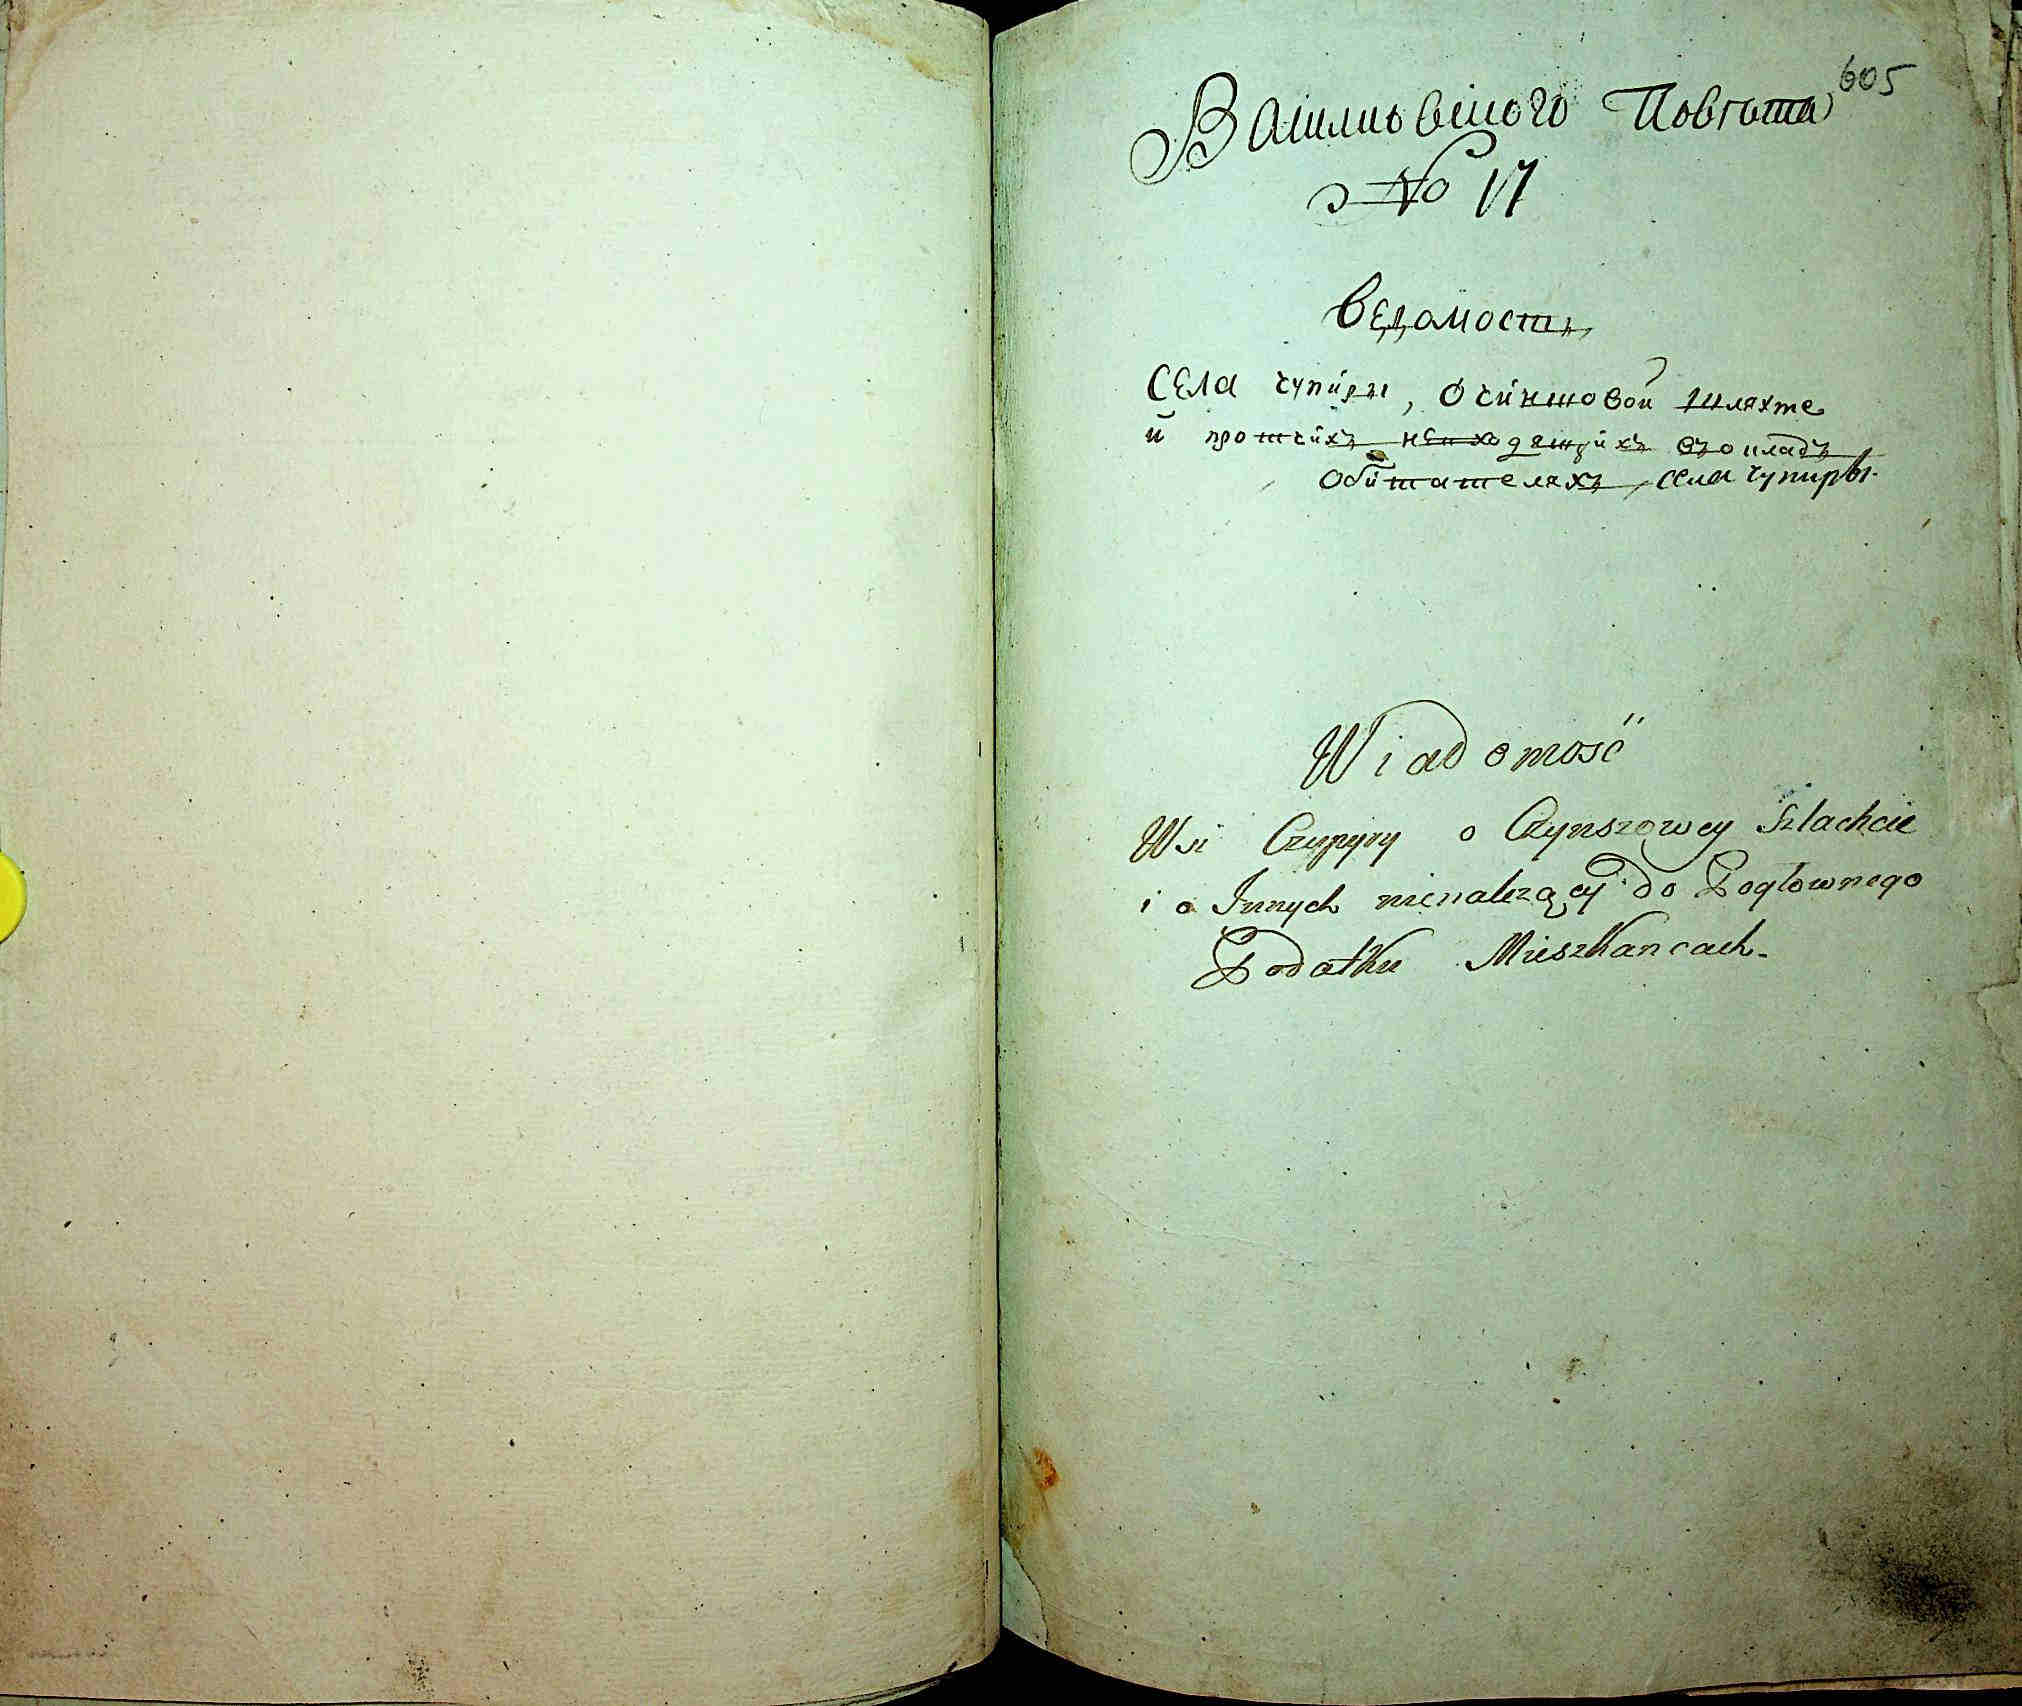 605
Васильовского Повгьта
No 17
Ведомость
Села чупиры, О чиншовой шляхте
и протчихъ неиходящихъ въокладъ
Обитателяхъ села чупиры.
Wiadomość
Wsi Czupyry o Czynszowey Szlachcie
i o Innych nienalezący do Pogłownego
Podatku Mieszkancach.